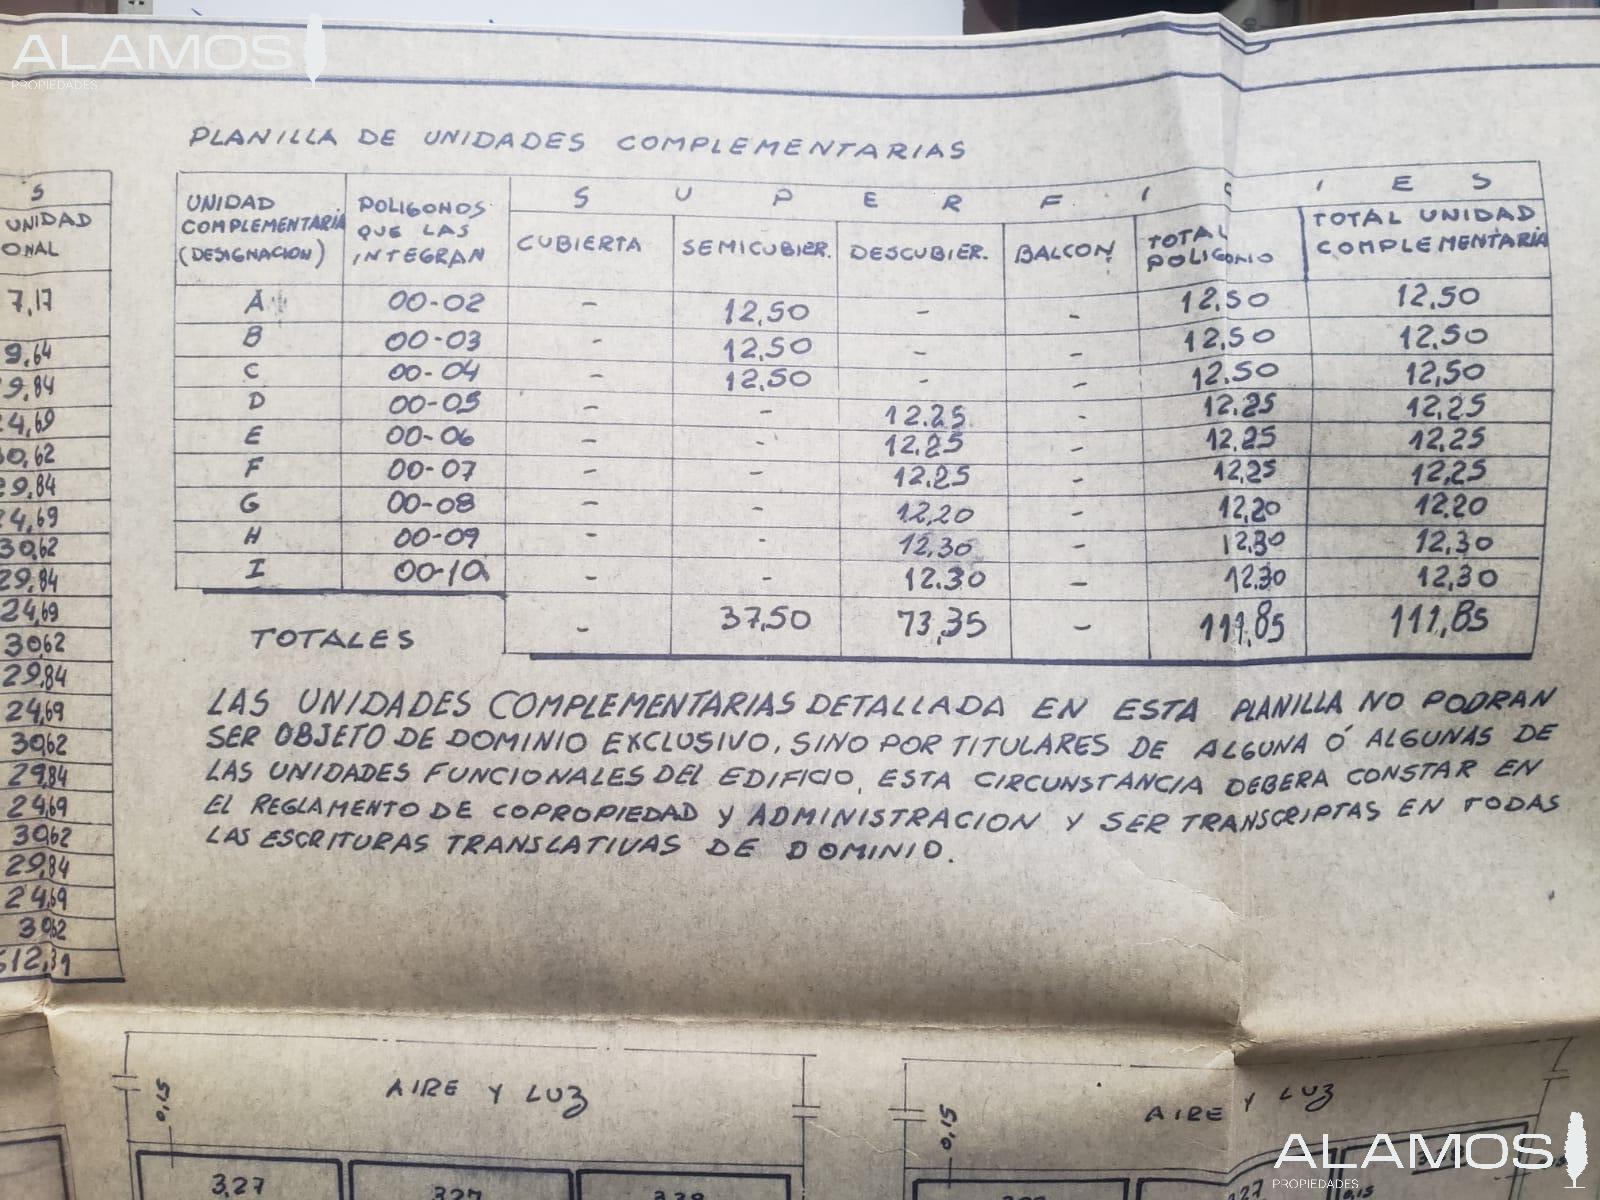 ALAMOS
PROPIEDADES
PLANILLA DE UNIDADES COMPLEMENTARIAS
S
UNIDAD
ONAL
7,17
9,64
9,84
24,69
30,62
29,84
24,69
30,62
29,84
24,69
30,62
29,84
24,69
30,62
29,84
24,69
30,62
29,84
24,69
30,62
612,31
UNIDAD COMPLEMENTARIA (DESIGNACION) POLIGONOS QUE LAS INTEGRAN S U P E R F I C I E S
CUBIERTA SEMICUBIER. DESCUBIER. BALCON TOTAL POLIGONO TOTAL UNIDAD COMPLEMENTARIA
A 00-02 - 12,50 - - 12,50 12,50
B 00-03 - 12,50 - - 12,50 12,50
C 00-04 - 12,50 - - 12,50 12,50
D 00-05 - - 12.25 - 12.25 12,25
E 00-06 - - 12.25 - 12,25 12,25
F 00-07 - - 12.25 - 12,25 12,25
G 00-08 - - 12,20 - 12,20 12,20
H 00-09 - - 12,30 - 12,30 12,30
I 00-10 - - 12.30 - 12,30 12,30
TOTALES - 37,50 73,35 - 111,85 111,85
LAS UNIDADES COMPLEMENTARIAS DETALLADA EN ESTA PLANILLA NO PODRAN
SER OBJETO DE DOMINIO EXCLUSIVO, SINO POR TITULARES DE ALGUNA Ó ALGUNAS DE
LAS UNIDADES FUNCIONALES DEL EDIFICIO, ESTA CIRCUNSTANCIA DEBERA CONSTAR EN
EL REGLAMENTO DE COPROPIEDAD Y ADMINISTRACION Y SER TRANSCRIPTAS EN TODAS
LAS ESCRITURAS TRANSLATIVAS DE DOMINIO.
0,15
AIRE Y LUZ
0,15
AIRE Y LUZ
3,27
3,27
0,15
ALAMOS
PROPIEDADES